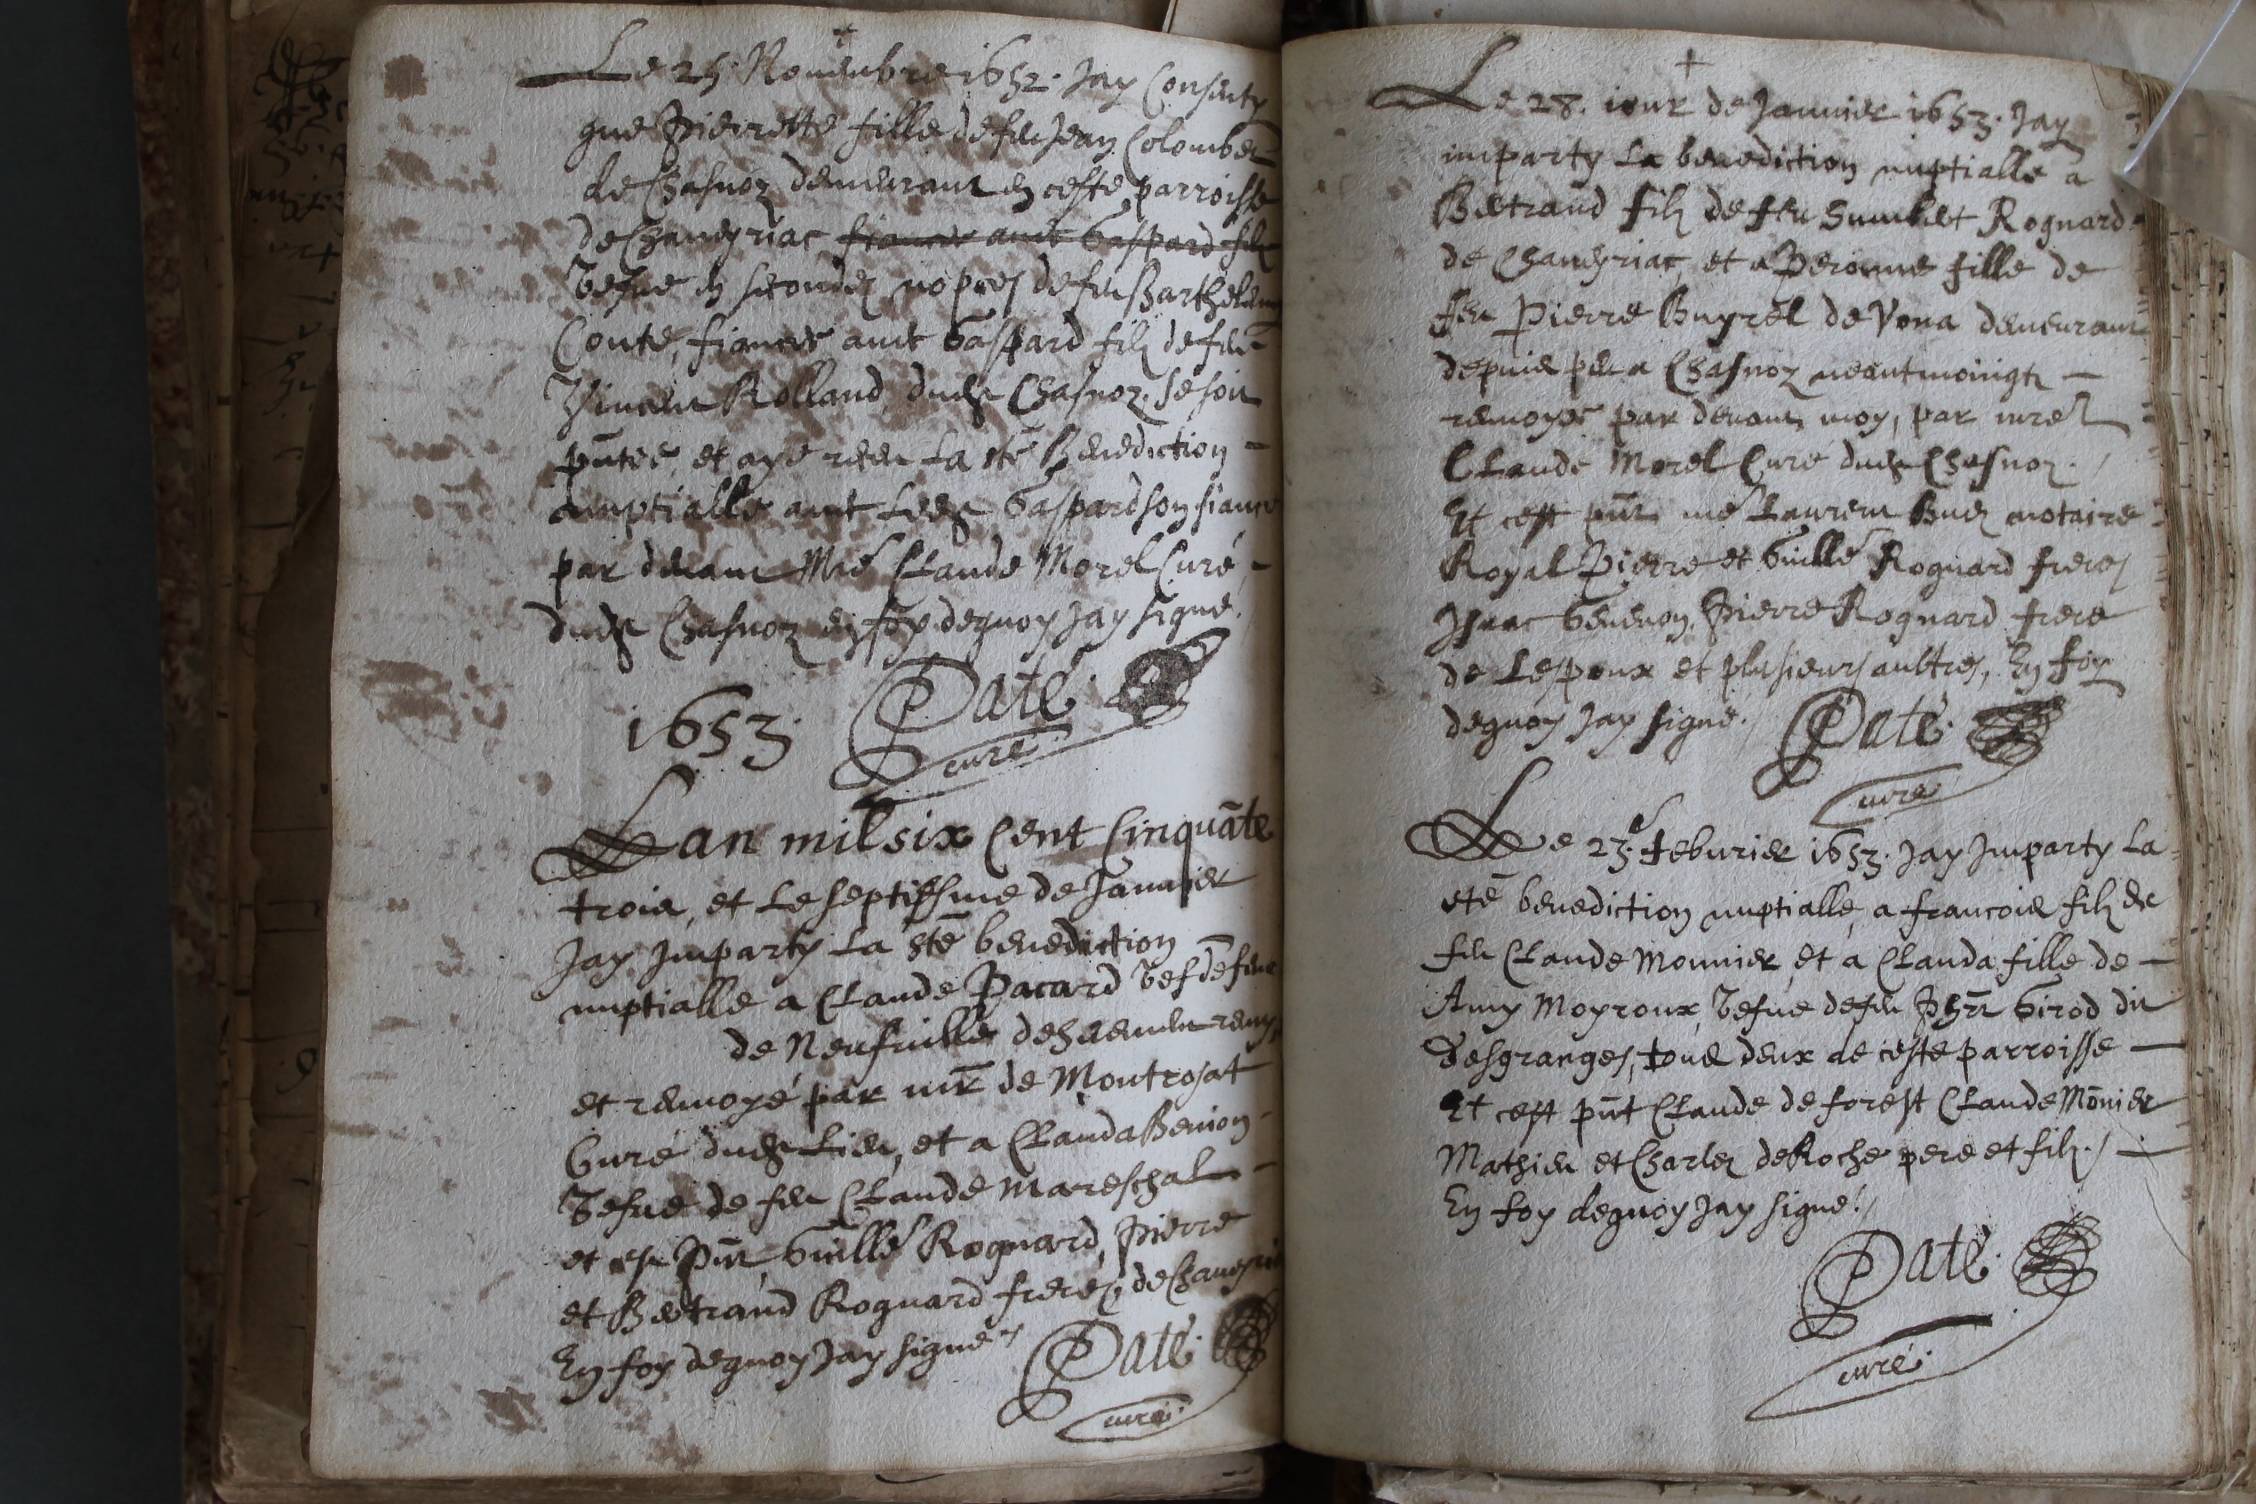 Le 25. Nouenbre 1652. Jay Consenty
que Pierrette fille de feu Jean Colomber
de Chasnoz demeurant en ceste parroisse
de Chaueyriac fiancée auec Gaspard filz
Vefue en secondes nopces de feu Barthelemy
Conte, fiancée auec Gaspard filz de feu
Vincent Rolland dudt Chasnoz. Se soit
pñtée, et aye receu La ste Benediction
nuptialle auec Ledt Gaspard son fiancé
par deuant Mre Claude Morel Curé
dudt Chasnoz en foy dequoy Jay signé.
Paté.
curé
1653.
Lan mil six Cent Cinquãte
trois, et Le septiesme de Januier
Jay Jmparty La ste benediction
nuptialle a Claude Pacard Vef de feue
de Neufuille
et renuoyé par mr de Montrosat
Curé dudt Lieu, et a Clauda Benion
Vefue de feu Claude Mareschal
et est pñt, Guille Roguard, Pierre
et Bertrand Roguard freres, de Chaueyriac
En foy dequoy Jay signé
Paté.
curé.
Le 28. iour de Januier 1653. Jay
imparty La benediction nuptialle a
Bertrand filz de feu Humbert Roguard
de Chaueyriac, et a Peronne fille de
feu Pierre Buyrel de Vona demeurant
depuis peu a Chasnoz neantmoingts
renuoyée par deuant moy, par mre
Claude Morel Curé dudt Chasnoz.
Et cest pñt me Laurent Buez notaire
Royal Pierre et Guille Roguard freres
Jsaac Geneuoy, Pierre Roguard frere
de Lespoux et plusieurs aultres, En foy
dequoy Jay signé.
Paté.
curé
Le 23. feburier 1653. Jay Jmparty La
ste benediction nuptialle, a francois filz de
feu Claude Monnier, et a Clauda fille de
Amy Moyroux, Vefue de feu Phrt Girod dit
Desgranges, tous deux de ceste parroisse
Et cest pñt Claude de forest Claude Mõnier
Mathieu et Charles deRoche pere et filz.
En foy dequoy Jay signé.
Paté.
curé.